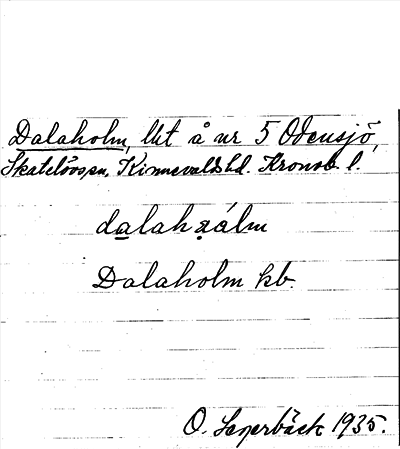 Dalaholm, lht å nr 5 Odensjö,
Skatelövs sn, Kinnevalds hd. Kronob. l.
dalahəálm
Dalaholm kb
O. Lagerbäck 1935.